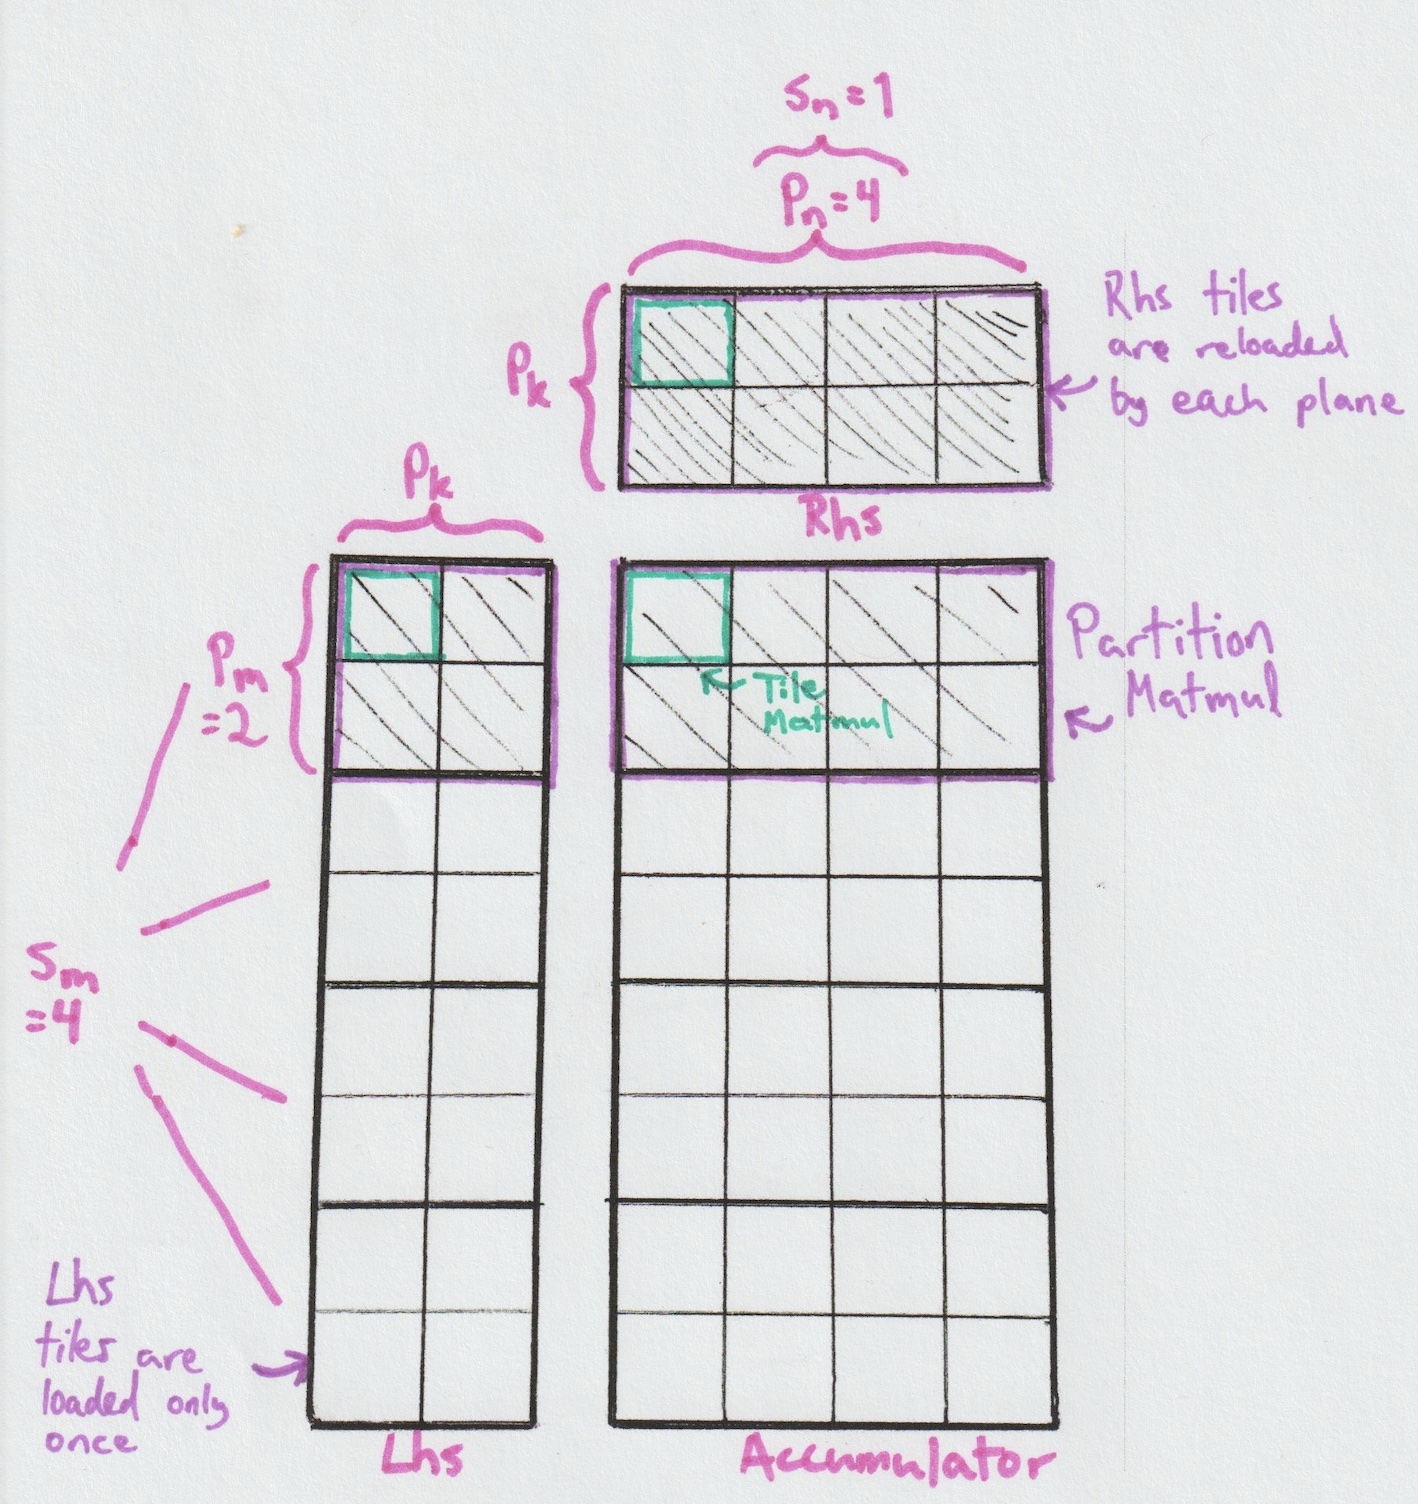 Sn=1
Pn=4
Rhs tiles
are reloaded
by each plane
Pk
Rhs
Pk
Pm
=2
Tile
Matmul
Partition
Matmul
Sm
=4
Lhs
tiles are
loaded only
once
Lhs
Accumulator